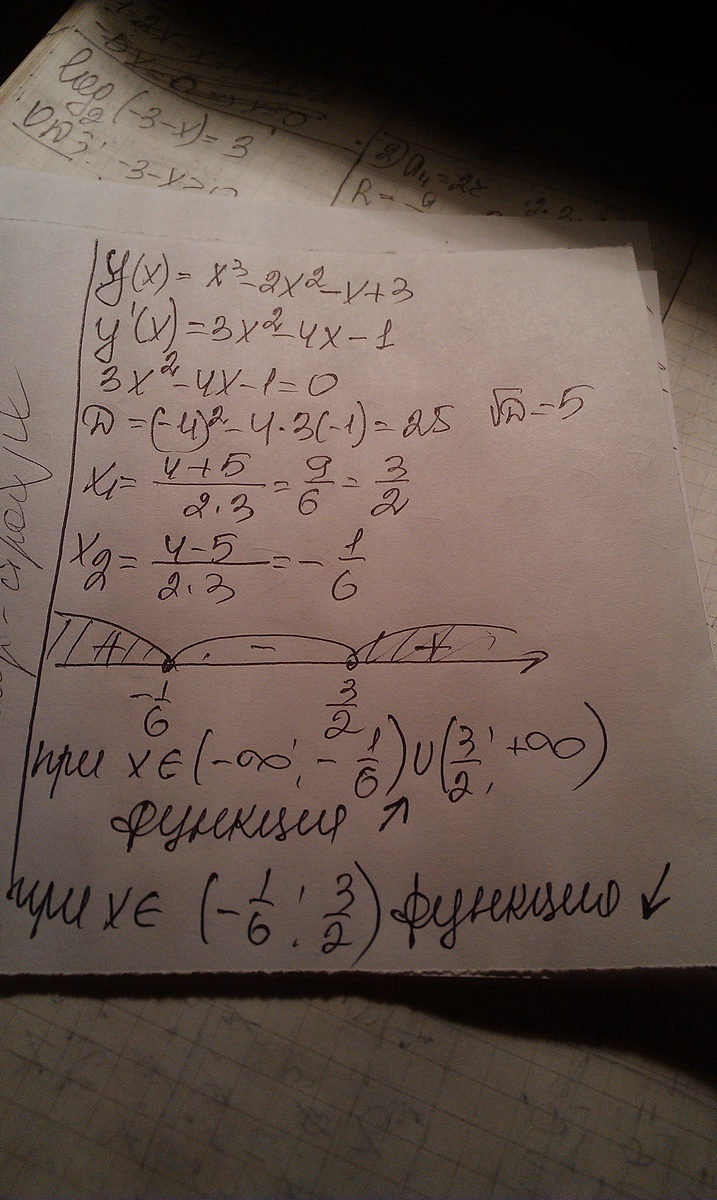 log₂(-3-x)=3
y(x)= x³-2x²-x+3
y'(x)=3x²-4x-1
3x²-4x-1=0
D=(-4)²-4·3(-1)=25 √D=5
x₁= (4+5)/(2·3) = 9/6 = 3/2
x₂= (4-5)/(2·3) = - 1/6
+ - +
-1/6 3/2
при x∈(-∞; -1/6)∪(3/2; +∞)
функция ↗
при x∈ (-1/6; 3/2) функцию ↙